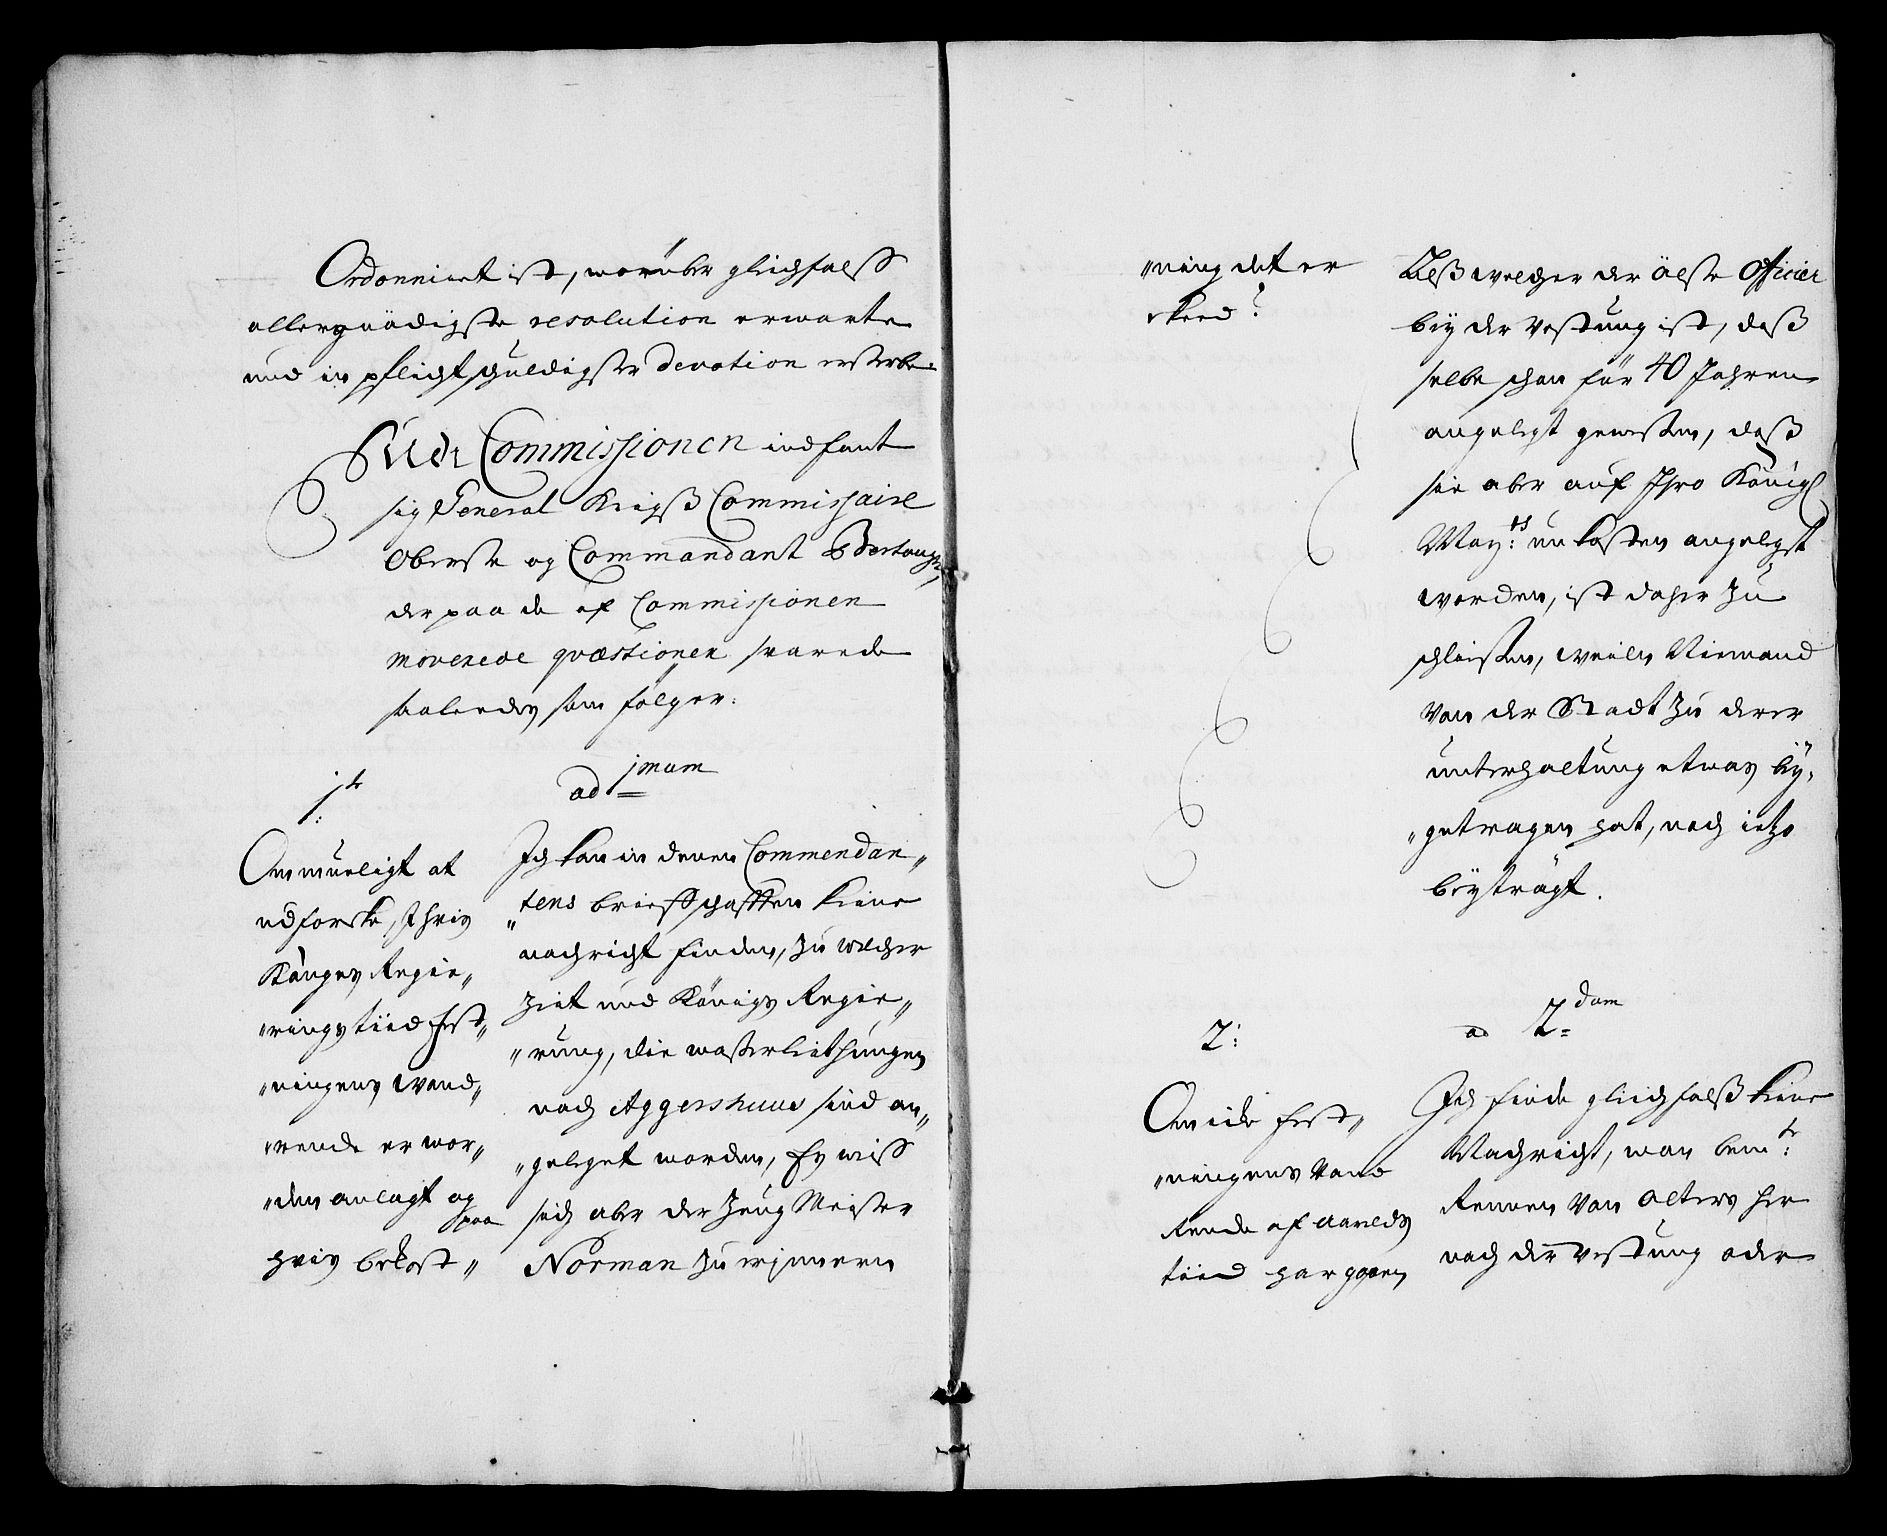 Ordonniret ist, worüber gleichfalss
allergnädigste resolution erwarte
und in pflichtschuldigster devotion ersterbe.
Commissionen indfant
sig General Krigß Commissaire
Oberste og Commandant
der paa de af Commissionen
moverede qvæstioner svarede
saaledes som følger:
1te
Om mueligt at
udforske, J hvis
Konges Regie„
„rings tiid Fest„
„ningens Vand„
„rende er wor„
„den anlagt og
paa
hvis bekost„
ad 1mum
Jch kan in denen Commendan„
„tens brieffschafften keine
nachricht finden, zu welcher
Zeit und Königs Regie„
„rung, die waßerleithungen
nach Aggershuus sind an„
„geleget worden, Es weiss
sich aber der Zeug Meister
Norman zu erinnern
„ning det er
skeed?
Alß welcher der ölste Officier
bey der Vestung ist, daß
selbe schon für 40 Jahren
angelegt gewesen, daß
sie aber auf Ihro Königl
May:ts unkosten angelegt
worden, ist daher zu
schliessen, weiln Niemand
von der Stadt zu derer
unterhaltung etwas bey„
„getragen hat, noch ietzo
beyträgt.
2:
Om icke Fest„
„ningens Vand
Rende af Aarilds
tiid har gaaen
ad 2dum
Jch finde gleichfalß keine
Nachricht, wan bem:te
Rennen von alters her
nach der Vestung oder